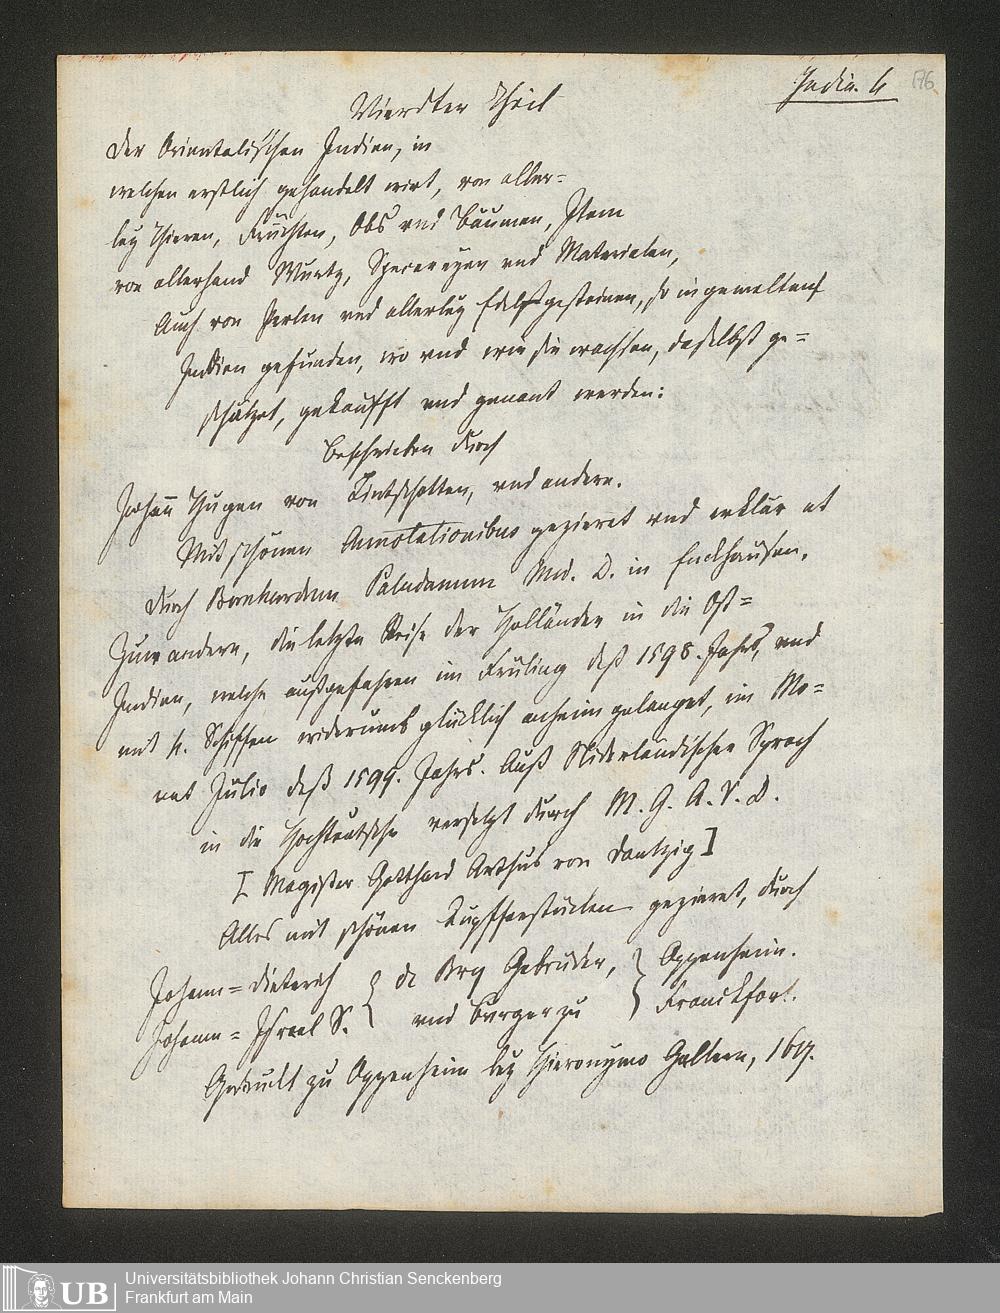 India. 4 176
Vierdter Theil
Der Orientalischen Indien, in
welchen erstlich gehandelt wirt, von aller=
ley Thieren, Früchten, Obs vnd Bäumen, Item
von allerhand Wurtz, Specereyen vnd Materialen,
Auch von Perlen vnd allerley Edelgesteinen, so in gemeltens
Indien gefunden, wo vnd wie sie wachssen, daselbst ge=
schätzet, gekaufft vnd genant werden:
Beschrieben durch
Johan Hugen von Lintschotten, vnd andere.
Mit schönen Annotationibus gezieret vnd erklär et
durch Bernhardum Paludanum Med. D. in Enckhausen.
Zum andern, die letzte Reise der Holländer in die Ost=
Indien, welche außgefahren im Früling deß 1598. Jahrs, vnd
mit 4. Schiffen widerumb glücklich anheim gelanget, im Mo=
nat Julio deß 1599. Jahrs. Auß Niderländischer Sprach
in die Hochteutsche versetzt durch M. G. A. V. D.
[Magister Gotthard Arthus von Dantzig]
Alles mit schönen Kupfferstücken gezieret, durch
Johann=Dieterich } de Bry Gebrüder, } Oppenheim.
Johann=Israel S. } vnd Burger zu } Franckfort.
Gedruckt zu Oppenheim bey Hieronymo Gallern, 1617.
UB Universitätsbibliothek Johann Christian Senckenberg
Frankfurt am Main